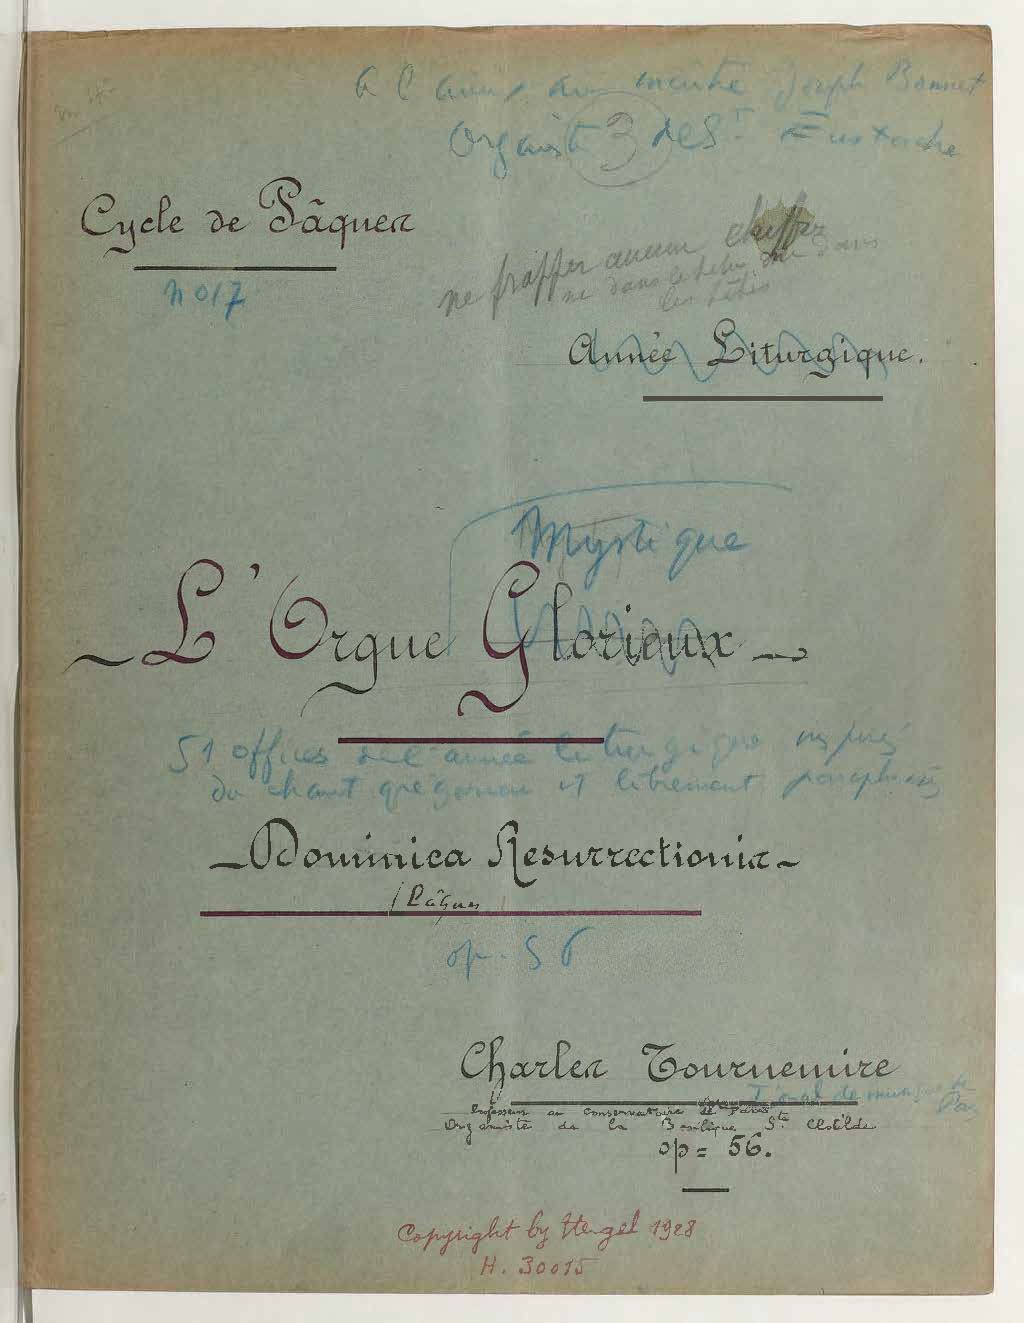 à l'ami, au maître Joseph Bonnet
Organiste de St Eustache
3
Cycle de Pâques
n° 17
ne frapper aucun chiffre
ni dans le début ni dans
les têtes
Année Liturgique.
Mystique
L'Orgue Glorieux
51 offices de l'année liturgique inspirés
du chant grégorien et librement paraphrasés
Dominica Resurrectionis
(Pâques)
op. 56
Charles Tournemire
Professeur au conservatoire de Paris
Organiste de la Basilique Ste Clotilde
op = 56.
Copyright by Heugel 1928
H. 30015